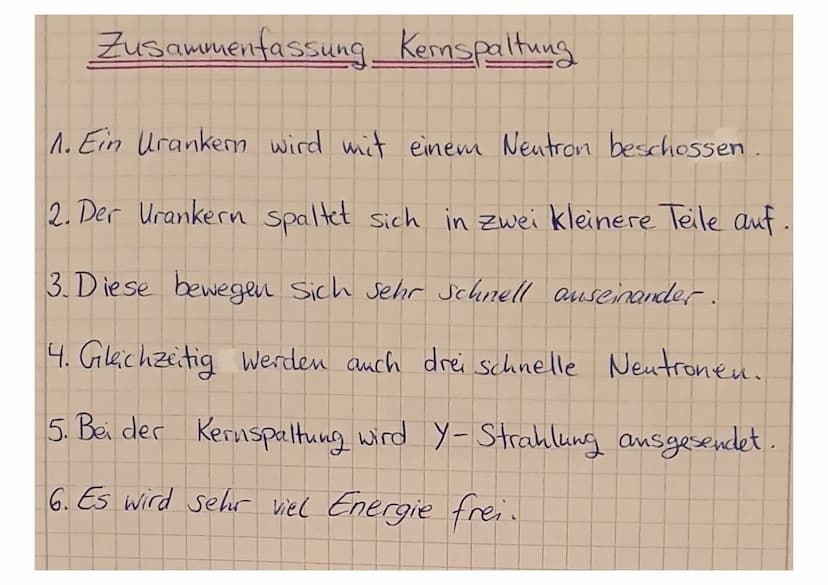 Zusammenfassung Kernspaltung
1. Ein Urankern wird mit einem Neutron beschossen.
2. Der Urankern spaltet sich in zwei kleinere Teile auf.
3. Diese bewegen sich sehr schnell auseinander.
4. Gleichzeitig werden auch drei schnelle Neutronen.
5. Bei der Kernspaltung wird γ-Strahlung ausgesendet.
6. Es wird sehr viel Energie frei.